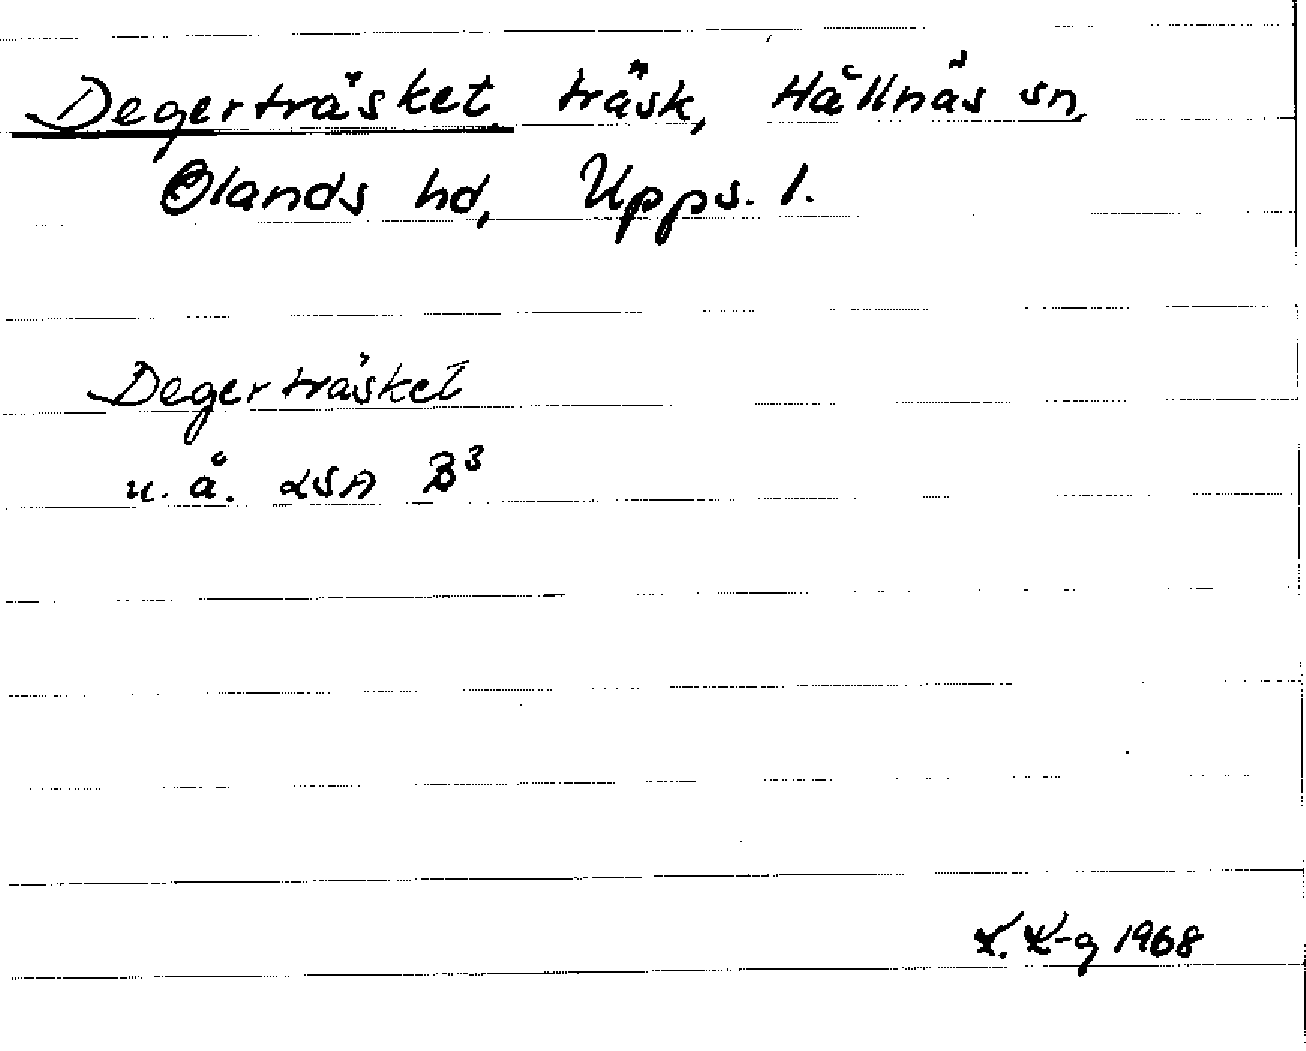 Degerträsket träsk, Hållnäs sn,
Olands hd, Upps. l.
Degerträsket
u. å. LSA B³
K. K-g 1968